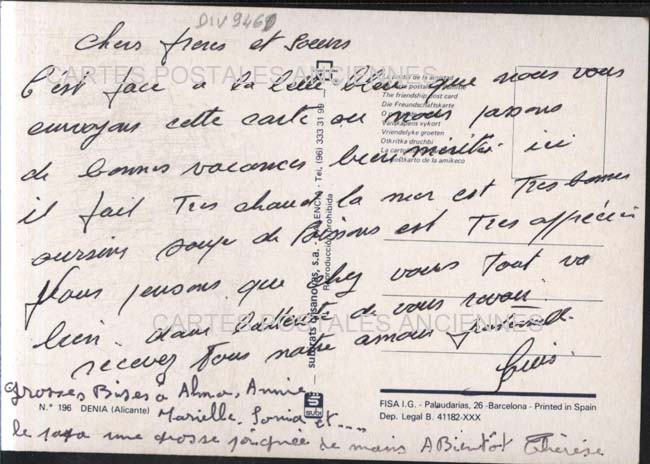 DIV9461
Chers freres et soeurs
C'est face a la belle bleu que nous vous
envoyons cette carte ou nous passons
de bonnes vacances bien mérités. ici
il fait Tres chaud la mer est Tres bonnes
oursins soupe de Poissons est Tres apprécié
Nous pensons que chez vous Tout va
bien. dans l'attente de vous revoir
recevez Tous notre amour fraternelle.
Grosses Bises a Alma, Annie,
Marielle, Sonia et ....
le papa une grosse poignée de mains A Bientôt Thérèse
CARTES POSTALES ANCIENNES
CARTES POSTALES ANCIENNES
La postal de la amistad
The friendship post card
Die Freundschaftskarte
Vänskapens vykort
Vriendelyke groeten
Otkritka druchbi
La poŝtkarto de la amikeco
subirats casanovas, s.a. - VALENCIA - Tel. (96) 333 31 99
Reproducción prohibida
subi
N.° 196 DENIA (Alicante)
FISA I.G. - Palaudarias, 26 -Barcelona - Printed in Spain
Dep. Legal B. 41182-XXX